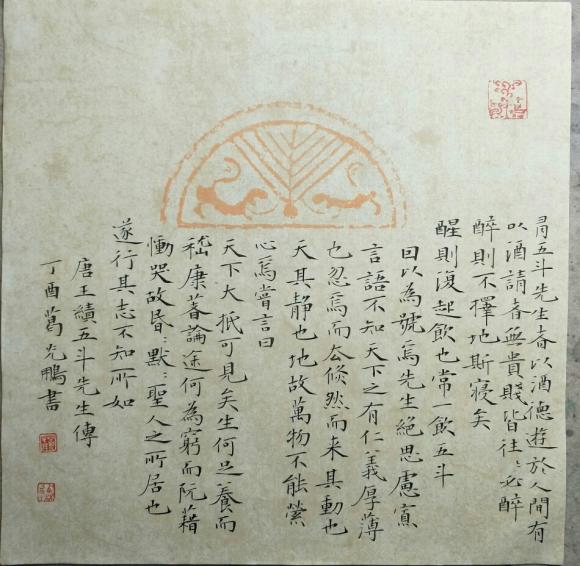 有五斗先生者以酒德遊於人間有
以酒請者無貴賤皆往〻必醉
醉則不擇地斯寢矣
醒則復起飲也常一飲五斗
因以為號焉先生絕思慮寡
言語不知天下之有仁義厚薄
也忽焉而去倏然而来其動也
天其静也地故萬物不能縈
心焉嘗言曰
天下大抵可見矣生何足養而
嵇康著論途何為窮而阮藉
慟哭故昏〻默〻聖人之所居也
遂行其志不知所如
唐王績五斗先生傳
丁酉葛光鵬書